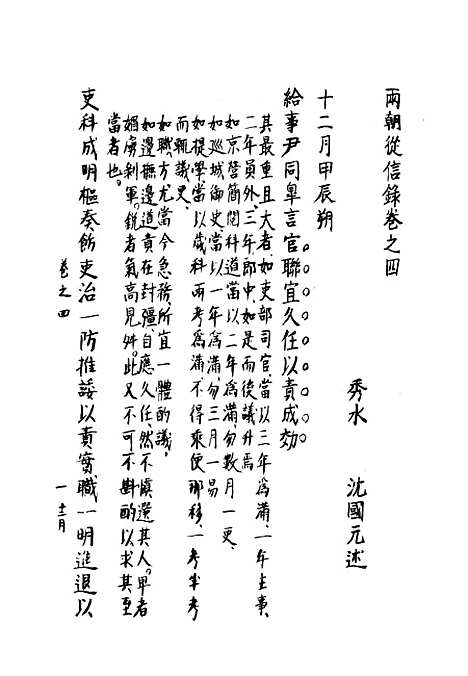 兩朝從信錄卷之四
秀水 沈國元述
十二月甲辰朔
給事尹同皐言官聯宜久任以責成効
其最重且大者如吏部司官當以三年為滿一年主事
二年員外三年郎中如是而後議升焉
如京營簡閱科道當以二年為滿勿數月一更
如巡城御史當以一年為滿勿三月一易
如提學當以歲科兩考為滿不得乘便那移一考半考
而輒議更
如職方尤當今急務所宜一體酌議
如邊撫邊道責在封疆自應久任然不慎選其人卑者
媚虜剝軍銳者氣高見舛此又不可不斟酌以求其至
當者也
吏科成明樞奏飭吏治一防推諉以責實職一明進退以
卷之四
一 十二月